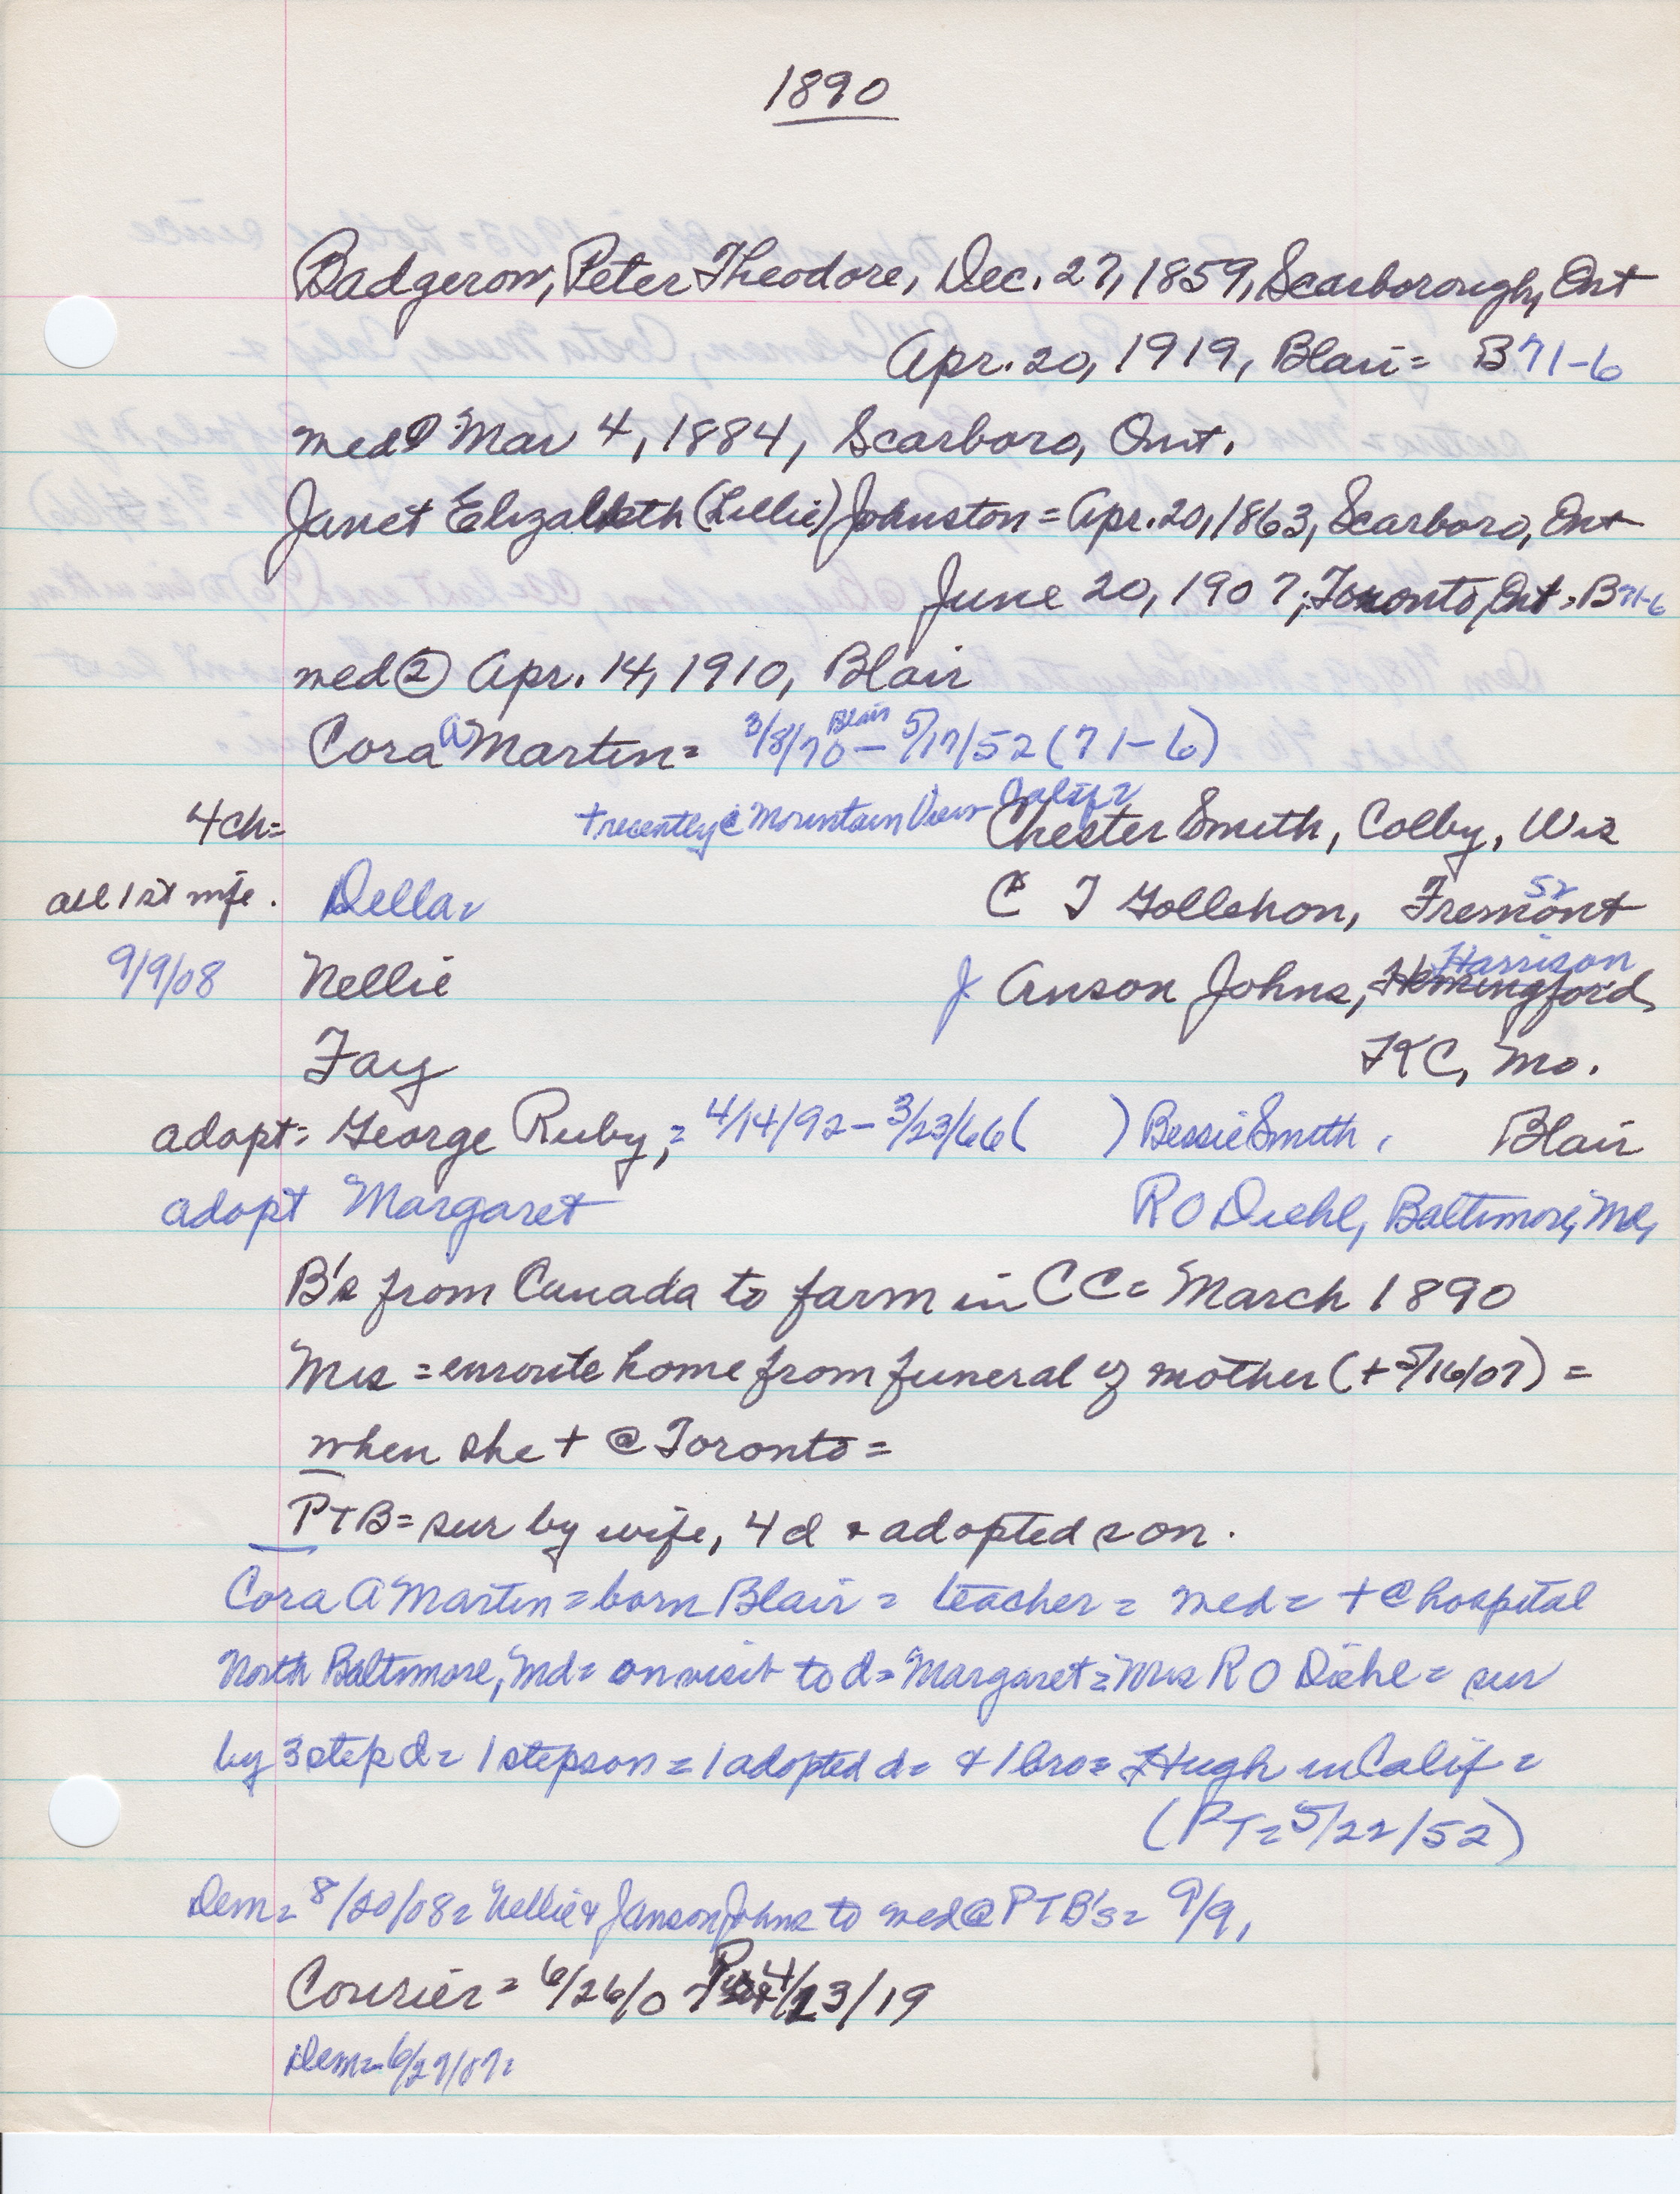 1890
Badgerow, Peter Theodore, Dec. 27, 1859, Scarborough, Ont
Apr. 20, 1919, Blair = B 71-6
med ① Mar 4, 1884, Scarboro, Ont.
Janet Elizabeth (Lillie) Johnston = Apr. 20, 1863, Scarboro, Ont
June 20, 1907, Toronto, Ont = B 71-6
med ② Apr. 14, 1910, Blair
Cora A Martin = 3/8/70 Blair – 5/17/52 (71-6)
4 ch = + recently @ Mountain View Calif = Chester Smith, Colby, Wis
all 1st wife. Della = C T Gollehon, Fremont 52
9/9/08 Nellie J Anson Johns, Hemingford, Harrison
Fay KC, Mo.
adopt = George Ruby, = 4/14/92 – 3/23/66 ( ) Bessie Smith, Blair
adopt Margaret R O Diehl, Baltimore, Md,
B's from Canada to farm in CC = March 1890
Mrs = enroute home from funeral of mother (+ 5/16/07) =
when she + @ Toronto =
PTB = sur by wife, 4 d & adopted son.
Cora A Martin = born Blair = teacher = med = + @ hospital
North Baltimore, Md = on visit to d = Margaret = Mrs R O Diehl = sur
by 3 step d = 1 stepson = 1 adopted d = & 1 bro = Hugh in Calif =
(PT = 5/22/52)
Dem = 8/20/08 = Nellie & J Anson Johns to med @ PTB's = 9/9,
Courier = 6/26/07 4/23/19
Dem = 6/27/07 =